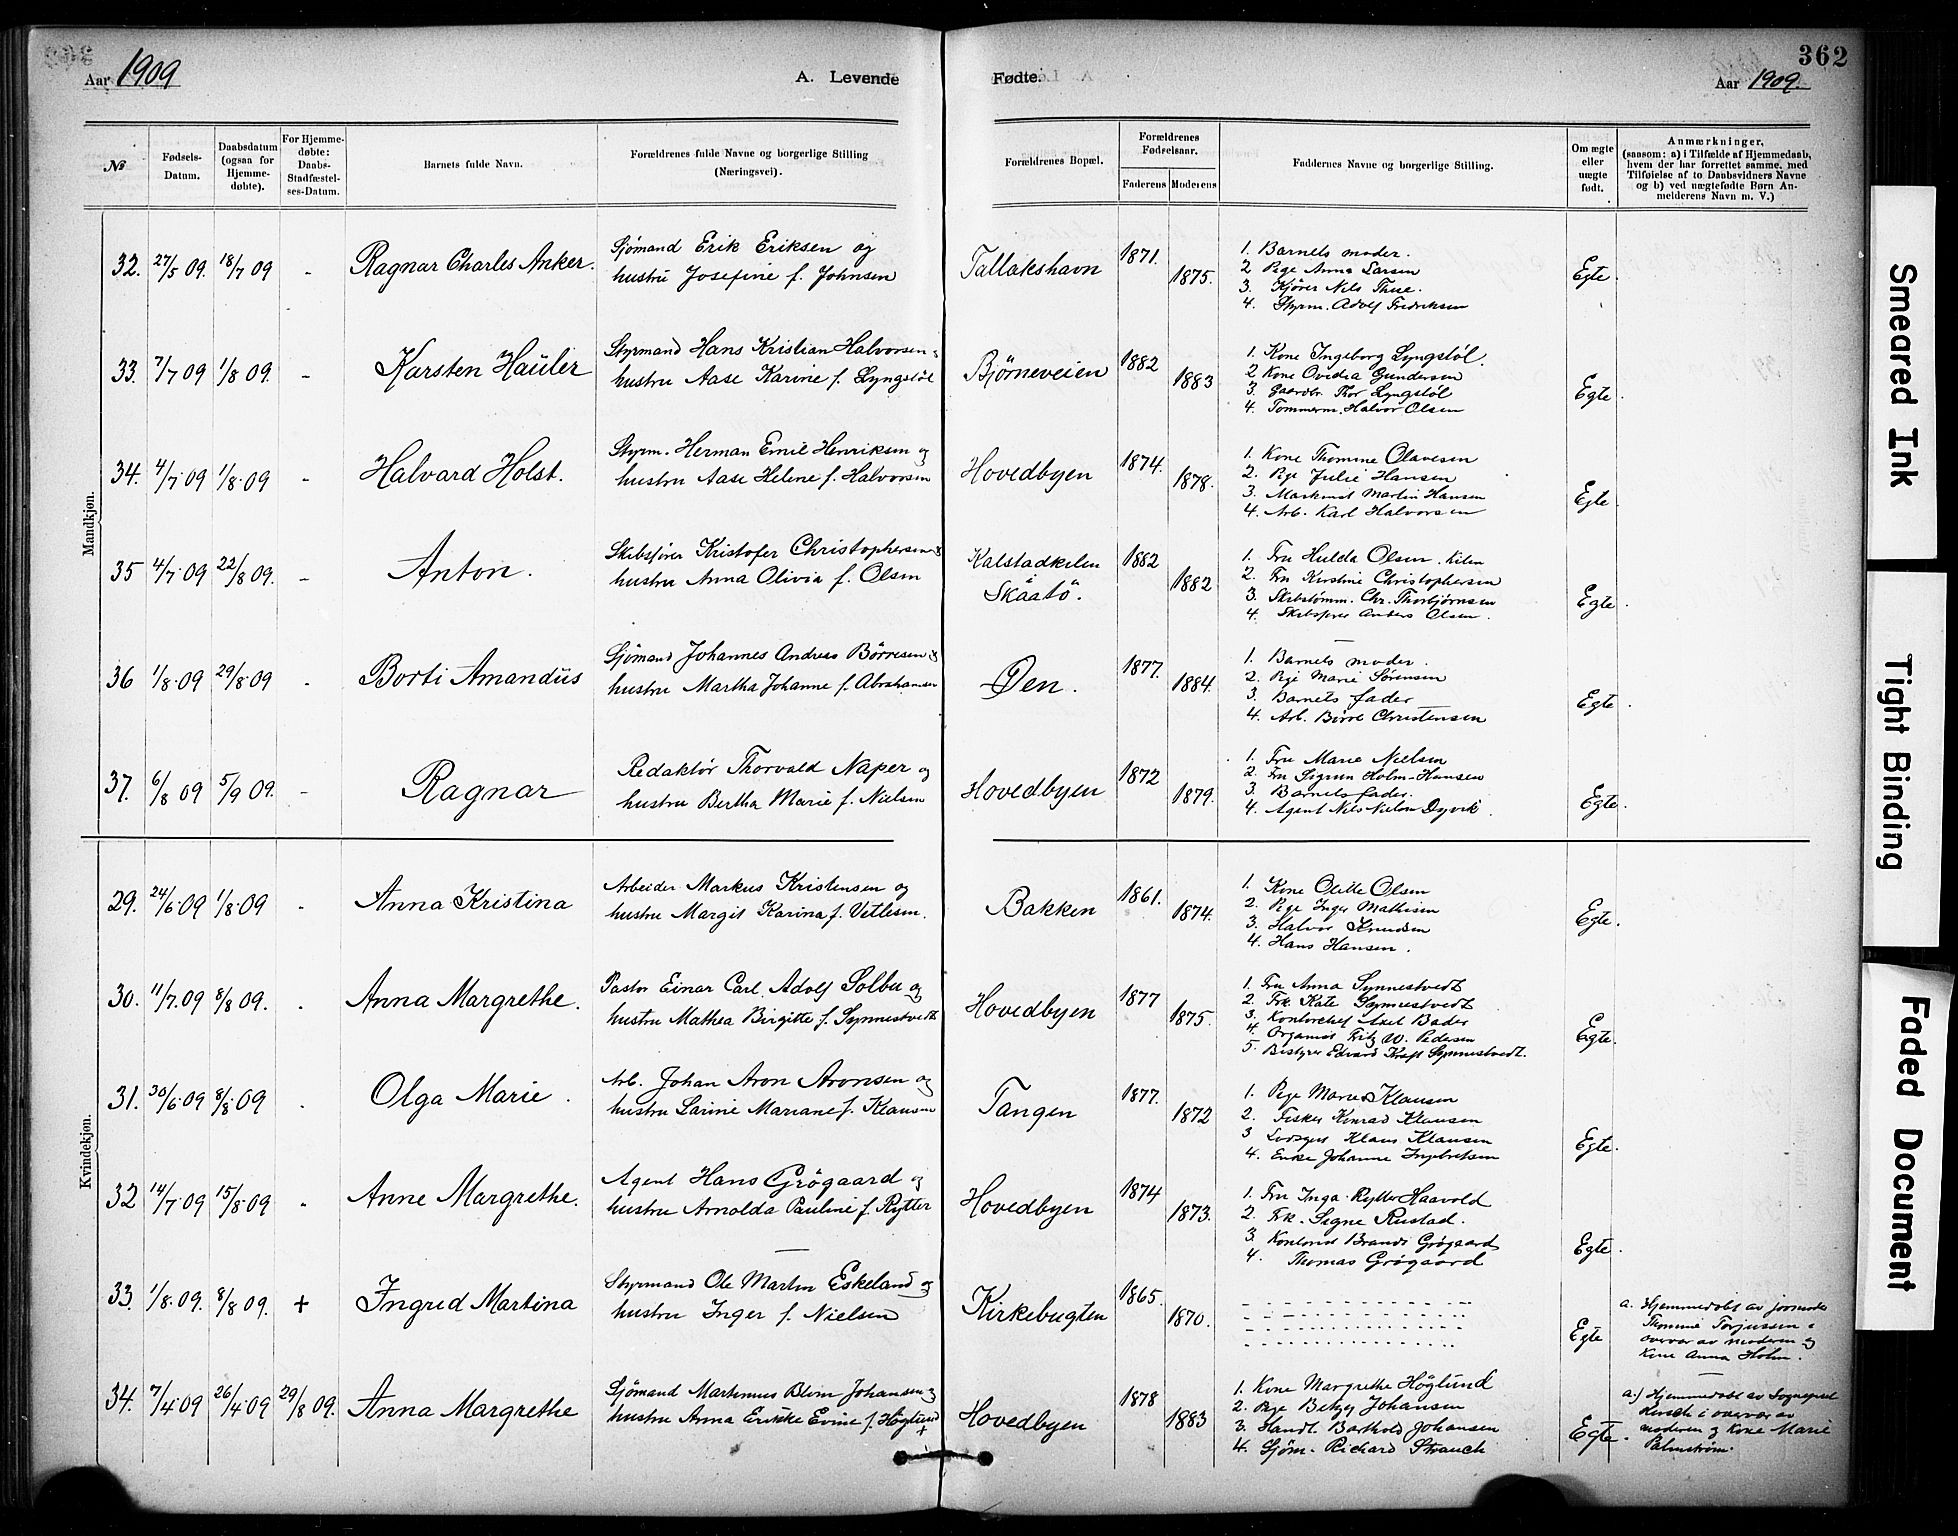 Aar 1909
A. Levende
Fødte.
362
Aar 1909.
№
Fødsels-Datum.
Daabsdatum (ogsaa for Hjemme-døbte).
For Hjemme-døbte: Daabs-Stadfæstel-ses-Datum.
Barnets fulde Navn.
Forældrenes fulde Navne og borgerlige Stilling (Næringsvei).
Forældrenes Bopæl.
Forældrenes Fødselsaar.
Faderens Moderens
Faddernes Navne og borgerlige Stilling.
Om ægte eller uægte født.
Anmærkninger,
(saasom: a) i Tilfælde af Hjemmedaab,
hvem der har forrettet samme, med
Tilføielse af to Daabsvidners Navne
og b) ved uægtefødte Børn An-
melderens Navn m. V.)
Mandkjøn.
32. 27/5 09. 18/7 09 - Ragnar Charles Anker.
Sjømand Erik Eriksen og
hustru Josefine f. Johnsen
Tallakshavn 1871. 1875.
1. Barnets moder.
2 Pige Anna Larsen
3. Kjører Nils Thue.
4. Styrm. Adolf Fredriksen
Egte.
33. 7/7 09 1/8 09. - Karsten Hauler
Styrmand Hans Kristian Halvorsen
hustru Aase Karine f. Lyngstøl
Bjørneveien 1882 1883
1. Kone Ingeborg Lyngstøl.
2 Kone Ovidia Gundersen
3. Gaardbr. Thor Lyngstøl
4. Tømmerm. Halvor Olsen
Egte.
34. 4/7 09 1/8 09 - Halvard Holst.
Styrm. Herman Emil Henriksen og
hustru Aase Helene f. Halvorsen
Hovedbyen 1874. 1878.
1. Kone Thomine Olavesen
2. Pige Julie Hansen
3. Maskinist Martin Hansen
4. Arb. Karl Halvorsen
Egte
35 4/7 09 22/8 09. - Anton.
Skibsfører Kristofer Christophersen &
hustru Anna Olivia f. Olsen
Kalstadkilen
Skåatö. 1882 1882
1. Fru Hulda Olsen. Kilen
2. Fru Kirstine Christophersen
3. Skibstømm. Chr. Thorbjørnsen
4. Skibsfører Anders Olsen.
Egte.
36 1/8 09 29/8 09 - Borti Amandus
Sjømand Johannes Andreas Börresen &
hustru Martha Johanne f. Abrahamsen
Øen. 1877. 1884.
1. Barnets moder.
2. Pige Marie Sørensen
3. Barnets fader
4. Arb. Börre Christensen
Egte.
37. 6/8 09 5/9 09. - Ragnar
Redaktør Thorvald Naper og
hustru Bertha Marie f. Nielsen
Hovedbyen 1872 1879.
1. Fru Marie Nielsen
2. Fru Sigrun Holm-Hansen
3. Barnets fader.
4. Agent Nils Nielsen Dyvik.
Egte.
Kvindekjøn.
29. 24/6 09 1/8 09 - Anna Kristina
Arbeider Markus Kristensen og
hustru Margit Karina f. Vetlesen.
Bakken 1861. 1874.
1. Kone Olette Olsen
2. Pige Inger Mathisen
3. Halvor Knudsen
4. Hans Hansen.
Egte.
30. 11/7 09 8/8 09. - Anna Margrethe.
Pastor Einar Carl Adolf Solbu og
hustru Mathea Birgitte f. Synnestvedt
Hovedbyen 1877 1875.
1. Fru Anna Synnestvedt
2. Frk. Kate Synnestvedt
3. Kontorchef Axel Bader
4. Organist Fritz W. Pedersen
5. Bestyrer Edvard Kraft Synnestvedt.
Egte.
31. 30/6 09 8/8 09 - Olga Marie.
Arb. Johan Aron Aronsen og
hustru Sarine Mariane f. Klausen
Tangen 1877. 1872
1. Pige Marie Klausen
2. Fisker Konrad Klausen
3 Klaus Klausen
4. Enke Johanne Ingebretsen
Egte.
32 14/7 09 15/8 09 - Anne Margrethe.
Agent Hans Grögaard og
hustru Arnolda Pauline f. Rytter
Hovedbyen 1874 1873.
1. Fru Inga Rytter Haavold
2. Frk. Signe Rustad.
3. Kontorist Brandt Grögaard
4. Thomas Grögaard
Egte.
33. 1/8 09. 8/8 09. + Ingrid Martina
Styrmand Ole Martin Eskeland og
hustru Inger f. Nielsen
Kirkebugten 1865. 1870.
Egte
a. Hjemmedøbt av jormoder
Thomine Torjussen i
overvær av moderen og
Kone Anna Holm.
34. 7/4 09 26/4 09 29/8 09. Anna Margrethe
Sjömand Martinius Blom Johansen og
hustru Anna Erikke Evine f. Höglund +
Hovedbyen 1878 1883
1. Kone Margrethe Höglund
2. Pige Betzy Johansen
3. Handl. Barthold Johansen
4. Sjöm. Richard Strauch
Egte.
a.) Hjemmedøbt av Sognepræst
i overvær av
moderen og Kone Marie
Palmström.
Smeared Ink
Tight Binding
Faded Document